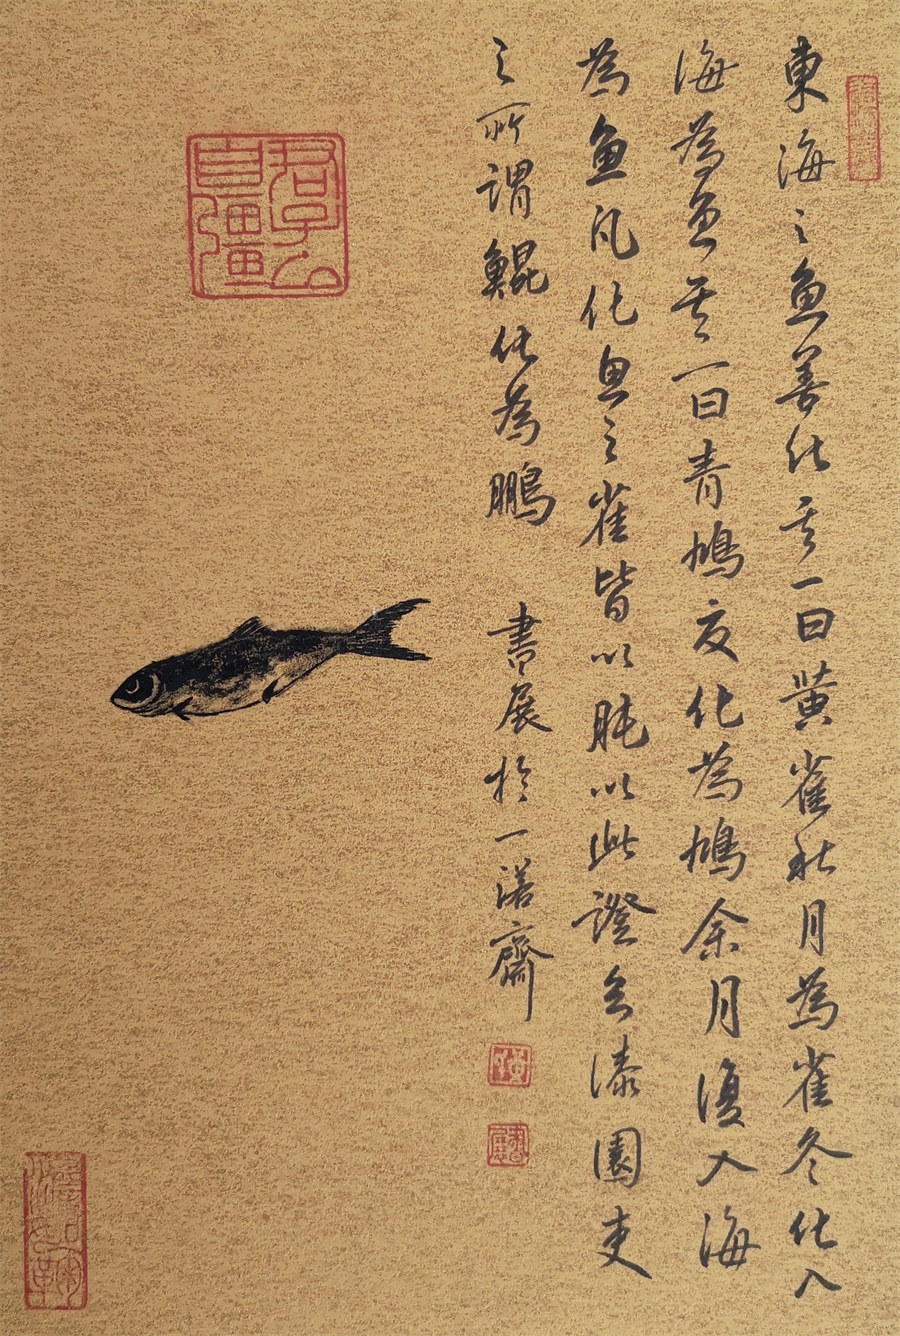 東海之魚善化其一曰黃雀秋月為雀冬化入
海為魚其一曰青鳩夏化為鳩余月復入海
為魚凡化魚之雀皆以肫以此證漆園吏
之所謂鯤化為鵬 書展於一諾齋
君子以
自彊
書展